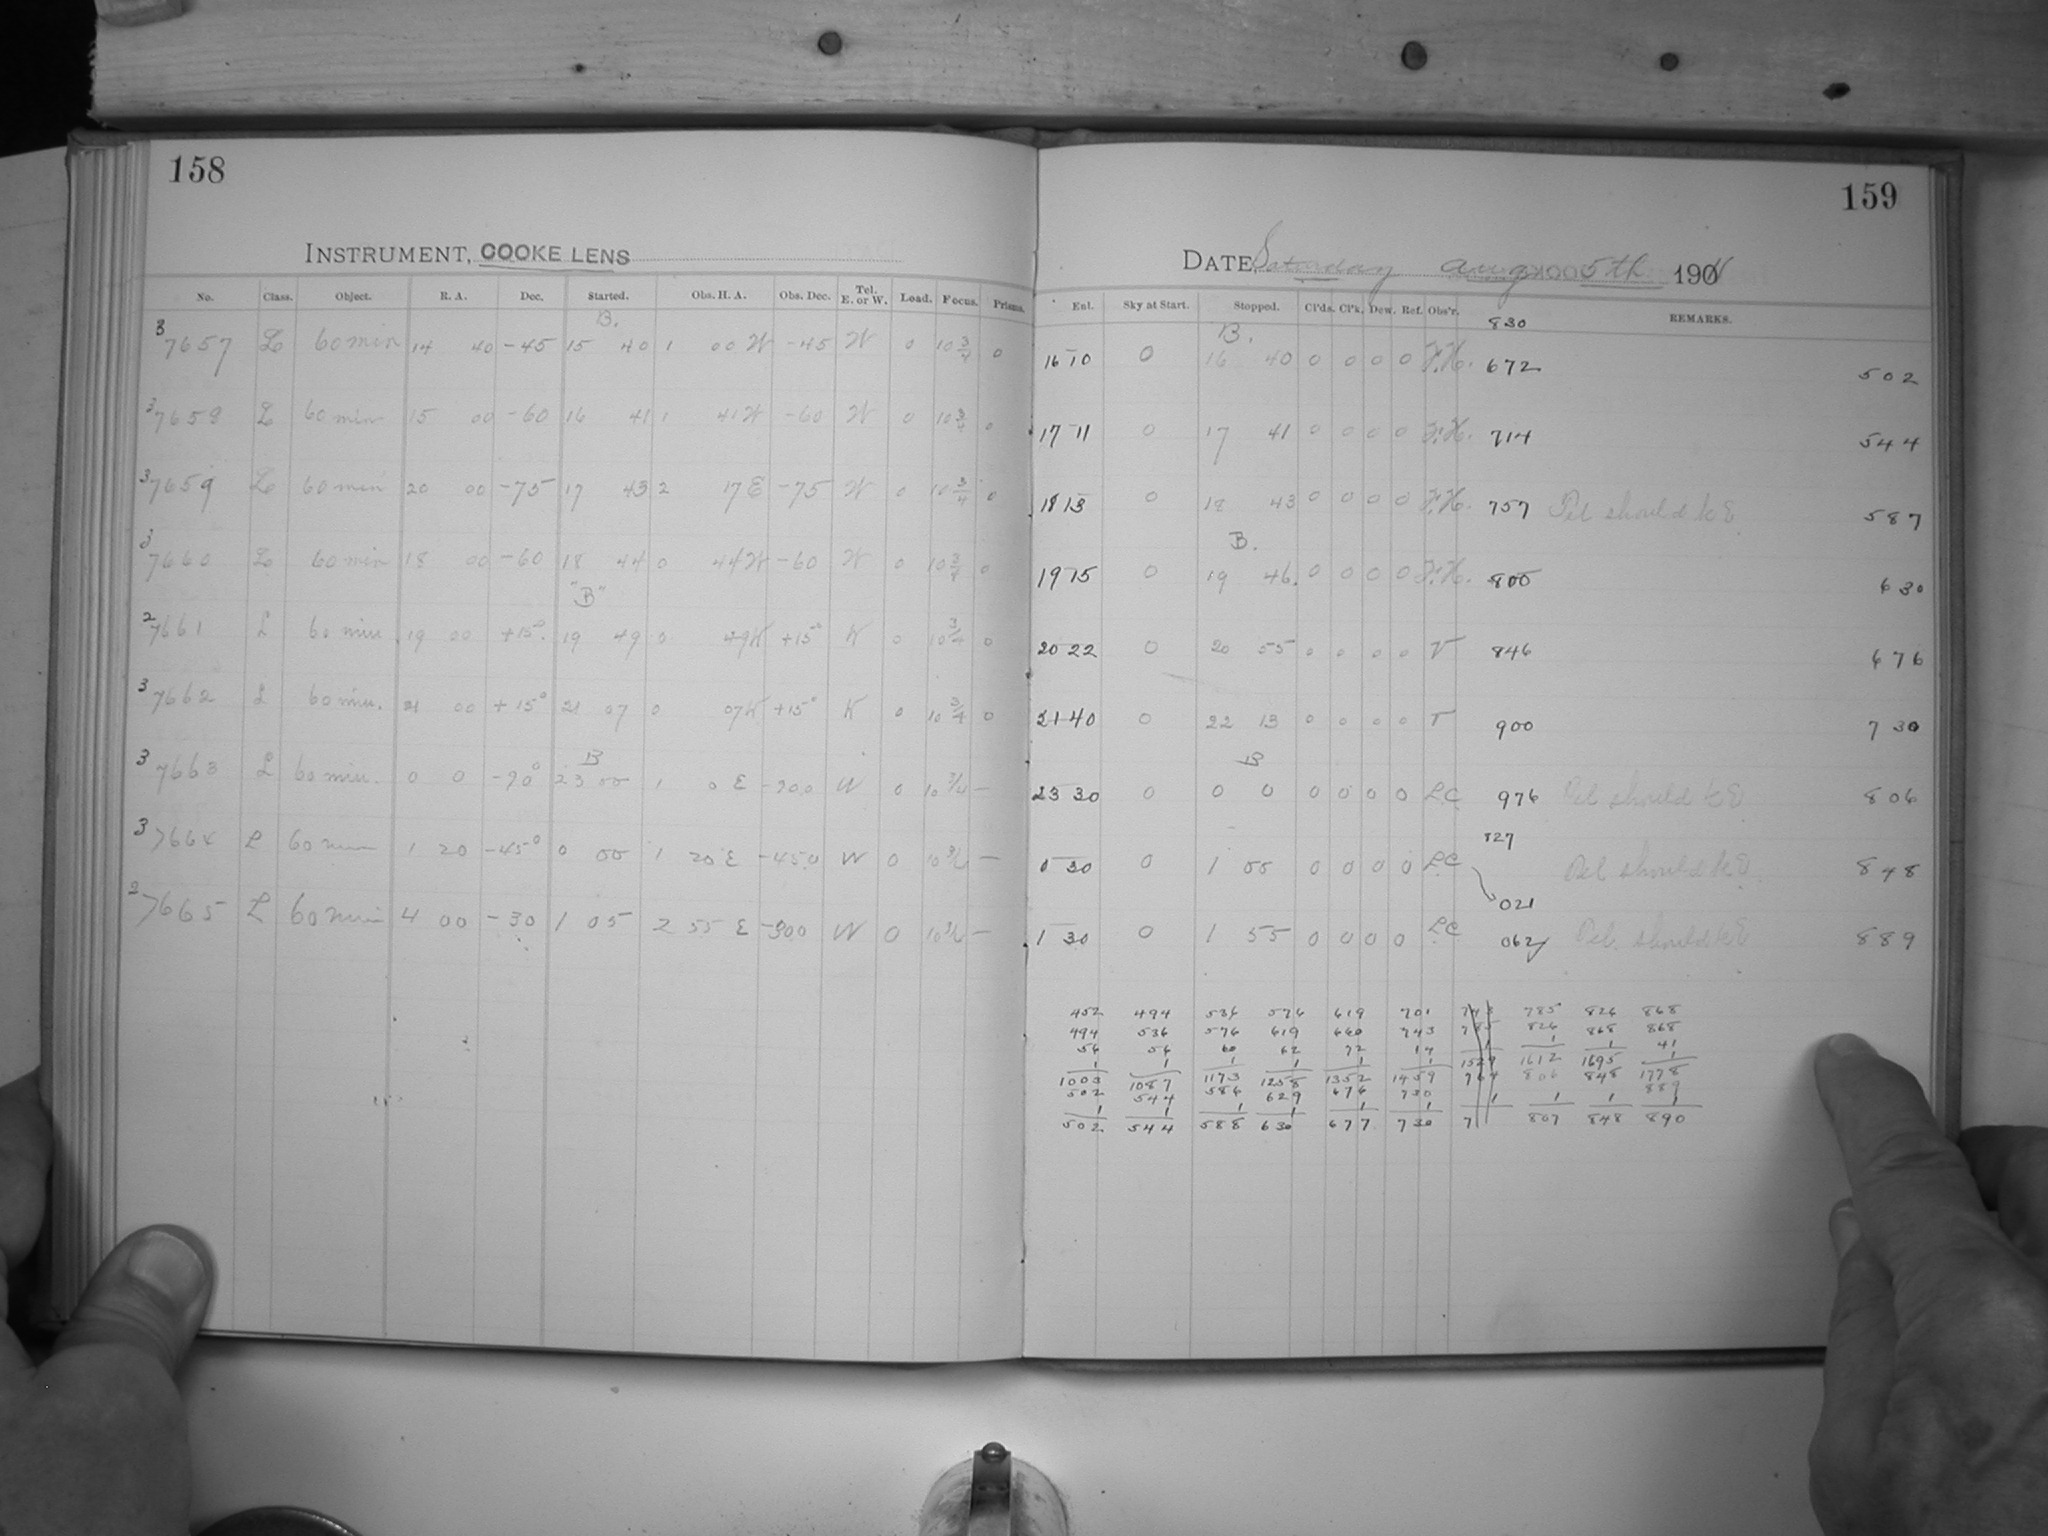 158
INSTRUMENT, COOKE LENS
No. Class. Object. R. A. Dec. Started. Obs. H. A. Obs. Dec. Tel. E. or W. Load. Focus. Prisms.
B.
3 7657 L 60 min 14 40 -45 15 40 1 00 W -45 W 0 10 3/4 0
3 7658 L 60 min 15 00 -60 16 41 1 41 W -60 W 0 10 3/4 0
3 7659 L 60 min 20 00 -75 17 43 2 17 E -75 W 0 10 3/4 0
3 7660 L 60 min 18 00 -60 18 44 0 44 W -60 W 0 10 3/4 0
"B"
2 7661 L 60 min 19 00 +15° 19 49 0 49 W +15° W 0 10 3/4 0
3 7662 L 60 min. 21 00 +15° 21 07 0 07 W +15° W 0 10 3/4 0
B
3 7663 L 60 min. 0 0 -90° 23 00 1 0 E -900 W 0 10 3/4 —
3 7664 L 60 min 1 20 -45° 0 00 1 20 E -450 W 0 10 3/4 —
2 7665 L 60 min 4 00 -30 1 05 2 55 E -300 W 0 10 3/4 —
159
DATE Saturday Aug 5th 190
Ent. Sky at Start. Stopped. Cl'ds. Cl'k. Dew. Ref. Obs'r. REMARKS.
830
B.
16 10 0 16 40 0 0 0 0 F.H. 672 502
17 11 0 17 41 0 0 0 0 F.H. 714 544
18 13 0 18 43 0 0 0 0 F.H. 757 Tel should be E 587
B.
19 15 0 19 46 0 0 0 0 F.H. 800 630
20 22 0 20 55 0 0 0 0 T 846 676
21 40 0 22 13 0 0 0 0 T 900 730
B
23 30 0 0 0 0 0 0 0 LC 976 Tel should be E 806
827
0 30 0 1 00 0 0 0 0 LC Tel should be E 848
021
1 30 0 1 55 0 0 0 0 LC 062 Tel. should be E 889
452 494 536 576 619 701 743 785 826 868
494 536 576 619 660 743 785 826 868 868
56 56 60 62 72 14 1 1 1 41
1 1 1 1 1 1 1529 1612 1695 1
1003 1087 1173 1258 1352 1459 764 806 848 1778
502 544 586 629 676 730 889
1 1 1 1 1 1 1 1 1 1
502 544 588 630 677 730 7 807 848 890